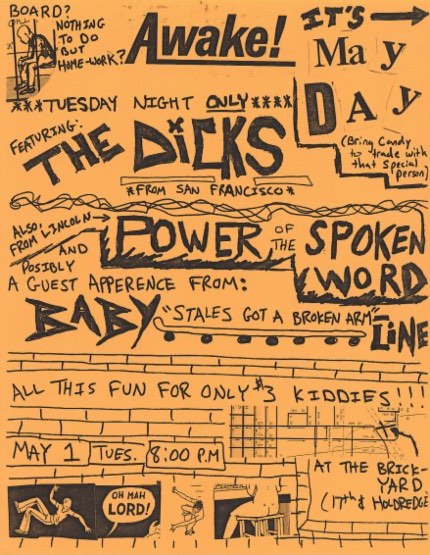 BOARD?
NOTHING
TO DO
BUT
HOME-WORK?
Awake!
IT'S
May
DAY
(Bring Candy
to trade with
that special
person)
***TUESDAY NIGHT ONLY****
FEATURING:
THE DiCKS
*FROM SAN FRANCISCO*
ALSO
FROM LINCOLN
POWER OF THE SPOKEN WORD
AND
POSIBLY
A GUEST APPERENCE FROM:
BABY LINE
"STALES GOT A BROKEN ARM"
ALL THIS FUN FOR ONLY $3 KIDDIES!!!
MAY 1 TUES. 8:00 P.M
AT THE BRICK-
YARD
(17th & HOLDREDGE)
OH MAH
LORD!